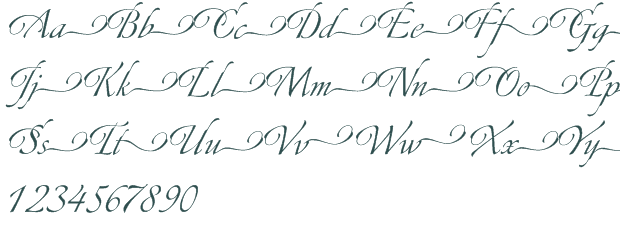 Aa Bb Cc Dd Ee Ff Gg
Jj Kk Ll Mm Nn Oo Pp
Ss Tt Uu Vv Ww Xx Yy
1234567890